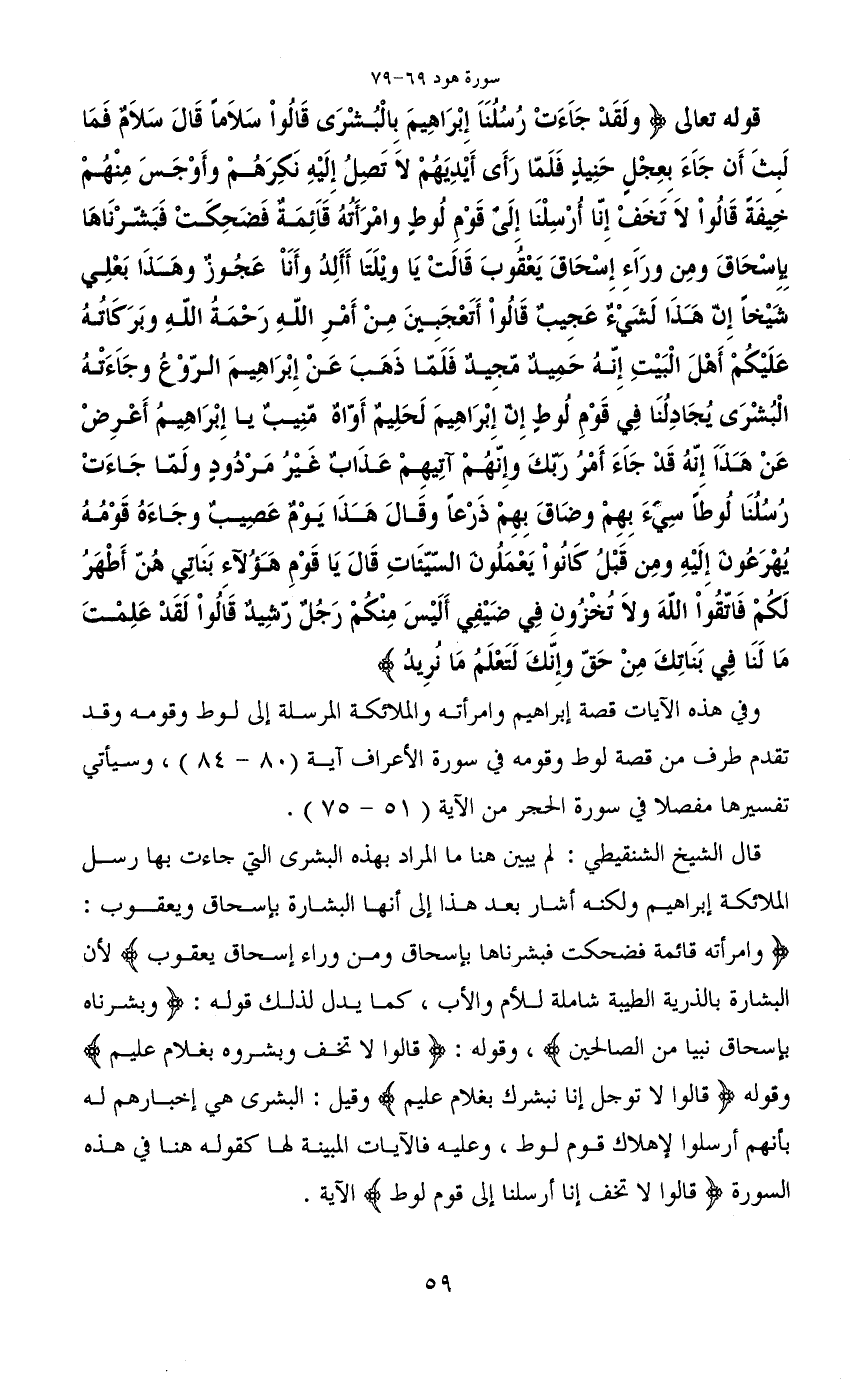 سورة هود ٦٩-٧٩
قوله تعالى ﴿ ولَقَدْ جَاءَتْ رُسُلُنَا إِبْرَاهِيمَ بِالْبُـشْرَى قَالُواْ سَلاَماً قَالَ سَلاَمٌ فَمَا
لَبِثَ أَن جَاءَ بِعِجْلٍ حَنِيذٍ فَلَمّا رَأَى أَيْدِيَهُمْ لاَ تَصِلُ إِلَيْهِ نَكِرَهُـمْ وأَوْجَـسَ مِنْهُـمْ
خِيفَةً قَالُواْ لاَ تَخَفْ إِنّا أُرْسِلْنَا إِلَىٰ قَوْمِ لُوطٍ وامْرَأَتُهُ قَائِمَـةٌ فَضَحِكَـتْ فَبَشّـرْنَاهَا
بِإِسْحَاقَ ومِن ورَاءِ إِسْحَاقَ يَعْقُوبَ قَالَتْ يَا ويْلَتَا أَأَلِدُ وأَنَاْ عَجُـوزٌ وهَـذَا بَعْلِـي
شَيْخاً إِنّ هَـذَا لَشَيْءٌ عَجِيبٌ قَالُواْ أَتَعْجَبِـينَ مِـنْ أَمْـرِ اللّـهِ رَحْمَـةُ اللّـهِ وبَرَكَاتُـهُ
عَلَيْكُمْ أَهْلَ الْبَيْتِ إِنّـهُ حَمِيـدٌ مّجِيـدٌ فَلَمّـا ذَهَـبَ عَـنْ إِبْرَاهِيـمَ الـرّوْعُ وجَاءَتْـهُ
الْبُشْرَى يُجَادِلُنَا فِي قَوْمِ لُوطٍ إِنّ إِبْرَاهِيمَ لَحَلِيمٌ أَوّاهٌ مّنِيـبٌ يـا إِبْرَاهِيـمُ أَعْـرِضْ
عَنْ هَـذَا إِنّهُ قَدْ جَاءَ أَمْرُ رَبّكَ وإِنّهُـمْ آتِيهِـمْ عَـذَابٌ غَـيْرُ مَـرْدُودٍ ولَمّـا جَـاءَتْ
رُسُلُنَا لُوطاً سِيءَ بِهِمْ وضَاقَ بِهِمْ ذَرْعـاً وقَـالَ هَـذَا يَـوْمٌ عَصِيـبٌ وجَـاءَهُ قَوْمُـهُ
يُهْرَعُونَ إِلَيْهِ ومِن قَبْلُ كَانُواْ يَعْمَلُونَ السّيّئَاتِ قَالَ يَا قَوْمِ هَـؤُلآءِ بَنَاتِي هُنّ أَطْهَرُ
لَكُمْ فَاتّقُواْ اللّهَ ولاَ تُخْزُونِ فِي ضَيْفِي أَلَيْسَ مِنْكُمْ رَجُلٌ رّشِيدٌ قَالُواْ لَقَدْ عَلِمْـتَ
مَا لَنَا فِي بَنَاتِكَ مِنْ حَقّ وإِنّكَ لَتَعْلَمُ مَا نُرِيدُ ﴾
وفي هذه الآيات قصة إبراهيم وامرأتـه والملائكـة المرسـلة إلى لـوط وقومـه وقـد
تقدم طرف من قصة لوط وقومه في سورة الأعراف آيـة (٨٠ – ٨٤ ) ، وسـيأتي
تفسيرها مفصلا في سورة الحجر من الآية ( ٥١ – ٧٥ ) .
قال الشيخ الشنقيطي : لم يبين هنا ما المراد بهذه البشرى التي جاءت بها رسـل
الملائكـة إبراهيـم ولكنـه أشـار بعـد هـذا إلى أنهـا البشـارة بإسـحاق ويعقـوب :
﴿ وامرأته قائمة فضحكت فبشرناها بإسحاق ومـن وراء إسـحاق يعقـوب ﴾ لأن
البشارة بالذرية الطيبة شاملة لـلأم والأب ، كمـا يـدل لذلـك قولـه : ﴿ وبشـرناه
بإسحاق نبيا من الصالحين ﴾ ، وقوله : ﴿ قالوا لا تخـف وبشـروه بغـلام عليـم ﴾
وقوله ﴿ قالوا لا توجل إنا نبشرك بغلام عليم ﴾ وقيل : البشرى هي إخبـارهم لـه
بأنهم أرسلوا لإهلاك قـوم لـوط ، وعليـه فالآيـات المبينـة لهـا كقولـه هنـا في هـذه
السورة ﴿ قالوا لا تخف إنا أرسلنا إلى قوم لوط ﴾ الآية .
٥٩